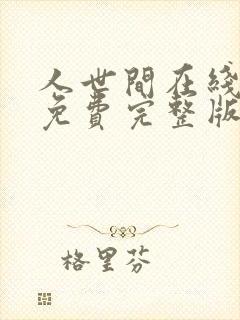 人世間在綫
免費完整版
格里芬